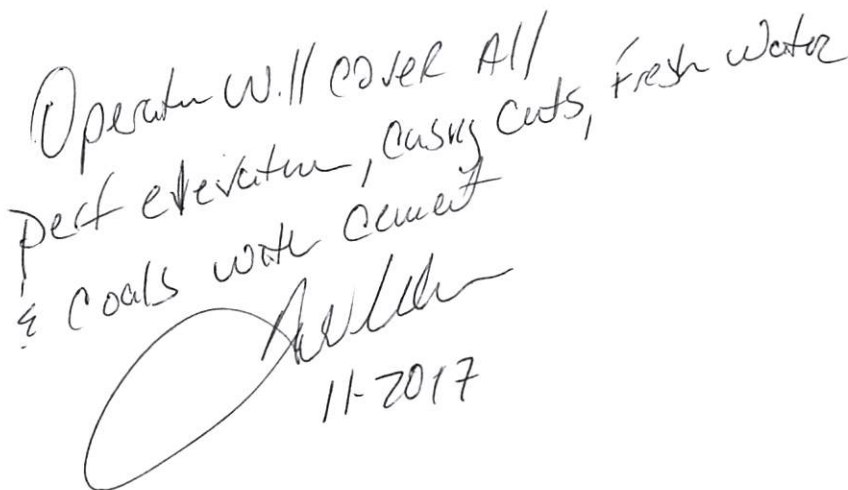 Operator Will cover All
perf elevation, casing cuts, Fresh Water
& coals with cement
11-2017